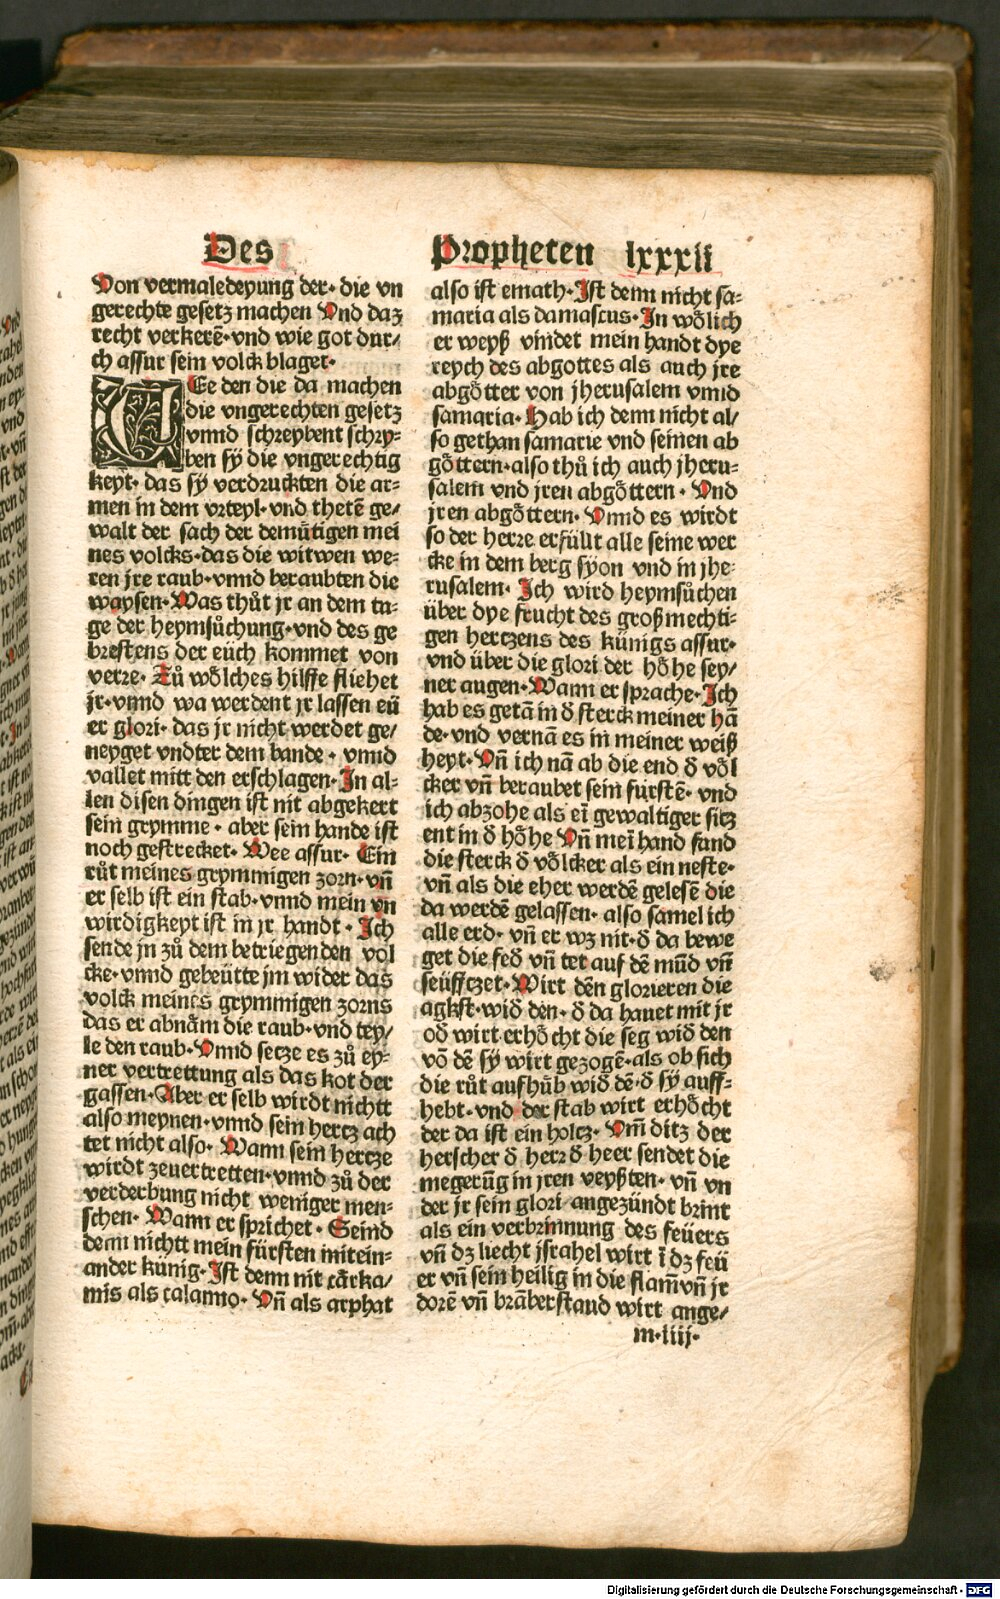 Des
Propheten lxxxii
Von vermaledeyung der· die vn
gerechte gesetz machen Vnd daz
recht verkerẽ·vnd wie got dur/
ch assur sein volck blaget·
WEe den die da machen
die vngerechten gesetz
vnnd schreybent schry-
ben sÿ die vngerechtig
keyt· das sÿ verdruckten die ar-
men in dem vrteyl·vnd thetẽ ge/
walt der sach der demuͤtigen mei
nes volcks·das die witwen we-
ren jre raub·vnnd beraubten die
waysen·Was thuͦt jr an dem ta-
ge der heymsuͦchung·vnd des ge
brestens der euͤch kommet von
verre· Zuͦ woͤlches hilffe fliehet
jr·vnnd wa werdent jr lassen euͤ
er glori· das jr nicht werdet ge/
neyget vndter dem bande· vnnd
vallet mitt den erschlagen·In al-
len disen dingen ist nit abgekert
sein grymme· aber sein hande ist
noch gestrecket· Wee assur· Ein
ruͦt meines grymmigen zorn·vñ
er selb ist ein stab·vnnd mein vn
wirdigkeyt ist in jr handt· Ich
sende jn zuͦ dem betriegenden vol
cke·vnnd gebeuͤtte jm wider das
volck meines grymmigen zorns
das er abnaͤm die raub·vnd tey/
le den raub·Vnnd setze es zuͦ ey-
ner vertrettung als das kot der
gassen·Aber er selb wirdt nichtt
also meynen·vnnd sein hertz ach
tet nicht also· Wann sein hertze
wirdt zeuertretten·vnnd zuͦ der
verderbung nicht weniger men-
schen· Wann er sprichet· Seind
denn nichtt mein fuͤrsten mitein-
ander kuͤnig·Ist denn nit carka/
mis als calanno· Vñ als arphat
also ist emath·Ist denn nicht sa-
maria als damascus·In woͤlich
er weyß vindet mein handt dye
reych des abgottes als auch jre
abgoͤtter von jherusalem vnnd
samaria· Hab ich denn nicht al/
so gethan samarie vnd seinen ab
goͤttern·also thuͦ ich auch jheru-
salem vnd jren abgoͤttern· Vnd
jren abgoͤttern· Vnnd es wirdt
so der herre erfuͤllt alle seine wer
cke in dem berg sÿon vnd in jhe-
rusalem· Ich wird heymsuͦchen
uͤber dye frucht des großmechti-
gen hertzens des kuͤnigs assur·
vnd uͤber die glori der hoͤhe sey/
ner augen·Wann er sprache·Ich
hab es getã in d̄ sterck meiner hã
de·vnd vernã es in meiner weiß
heyt·Vñ ich nã ab die end d̄ voͤl
cker vñ beraubet sein fuͤrstẽ· vnd
ich abzohe als eĩ gewaltiger sitz
ent in d̄ hoͤhe Vñ meĩ hand fand
die sterck d̄ voͤlcker als ein neste·
vñ als die eyer werdẽ gelesẽ die
da werdẽ gelassen· also samel ich
alle erd· vñ er wz nit·d̄ da bewe
get die fed̄ vñ tet auf dẽ mũd vñ
seuͤfftzet·Wirt dẽn glorieren die
agkst·wid̄ den· d̄ da hauet mit jr
od̄ wirt erhoͤcht die seg wid̄ den
võ dẽ sÿ wirt gezogẽ·als ob sich
die ruͦt aufhuͤb wid̄ dẽ·d̄ sÿ auff-
hebt·vnd der stab wirt erhoͤcht
der da ist ein holtz· Vm̃ ditz der
herscher d̄ herr d̄ heer sendet die
megerũg in jren veyßten· vñ vn
der jr sein glori angezuͤndt brint
als ein verbrinnung des feuͤers
vñ dz liecht jsrahel wirt ĩ dz feuͤ
er vñ sein heilig in die flam̃ vñ jr
dorẽ vñ brãberstaud wirt ange/
m·iiij·